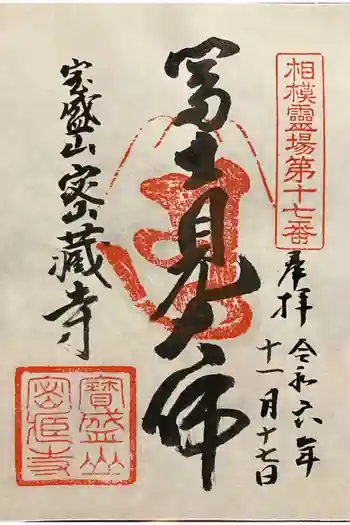 相模靈場第十七番
奉拝 令和六年
十一月十七日
富士見大師
宝盛山 密蔵寺
寶盛山
密蔵寺